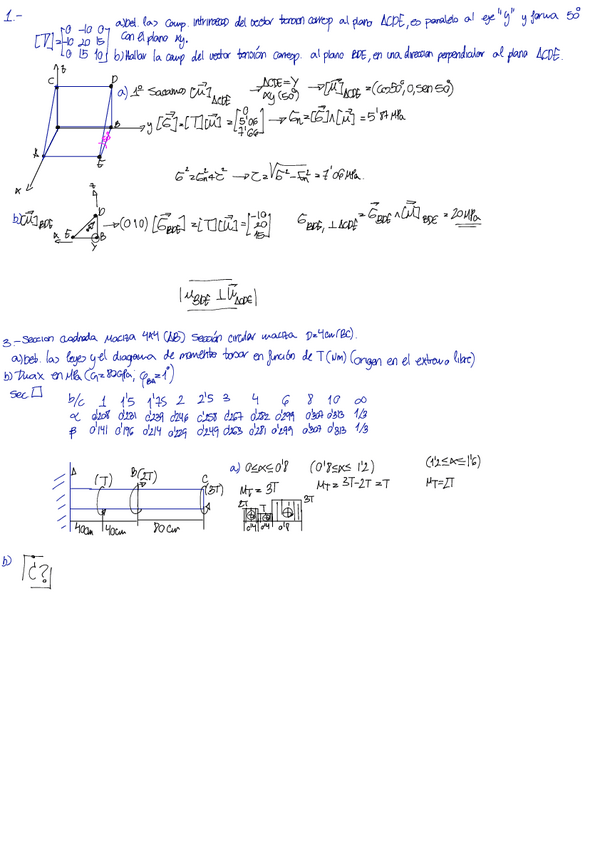 1.-
[T]=
0 -10 0
-10 20 15
0 15 10
a) Det. las comp. intrinsecas del vector tension corresp al plano ACDE, es paralelo al eje "y" y forma 50°
con el plano xy.
b) Hallar la comp del vector tensión corresp. al plano BDE, en una direccion perpendicular al plano ACDE.
z
C
D
B
A
E
x
y
a) 1º Sacamos [u] ACDE → ACDE = Y
xy (50°)
→ [u] ACDE = (cos50°, 0, sen 50°)
[σ] = [T][u] =
0
5'06
7'66
→ σn = [σ]∧[u] = 5'87 MPa
σ² = σn² + τ² → τ = √σ² - σn² = 7'06 MPa.
b) [u] BDE
z
D
x
E
B
y
→ (0 1 0) [σBDE] = [T][u] =
-10
20
15
σBDE, ⊥ ACDE = σBDE ∧ [u] BDE = 20 MPa
|uBDE ⊥ uACDE|
3.- Seccion cuadrada maciza 4x4 (AB) Sección circular maciza D=4cm (BC).
a) Det. las leyes y el diagrama de momento torsor en función de T (N/m) (origen en el extremo libre)
b) Tmax en MPa (G=82GPa; φBA=1°)
sec □
b/c 1 1'5 1'75 2 2'5 3 4 6 8 10 ∞
α 0'208 0'231 0'239 0'246 0'258 0'267 0'282 0'299 0'307 0'313 1/3
β 0'141 0'196 0'214 0'229 0'249 0'263 0'281 0'299 0'307 0'313 1/3
A
(T)
B(2T)
C
(3T)
40cm
40cm
80 cm
a) 0≤x≤0'8 (0'8≤x≤ 1'2) (1'2≤x≤1'6)
MT = 3T MT = 3T-2T = T MT=2T
2T
T
3T
0'4
0'4
0'8
b) ¿C?